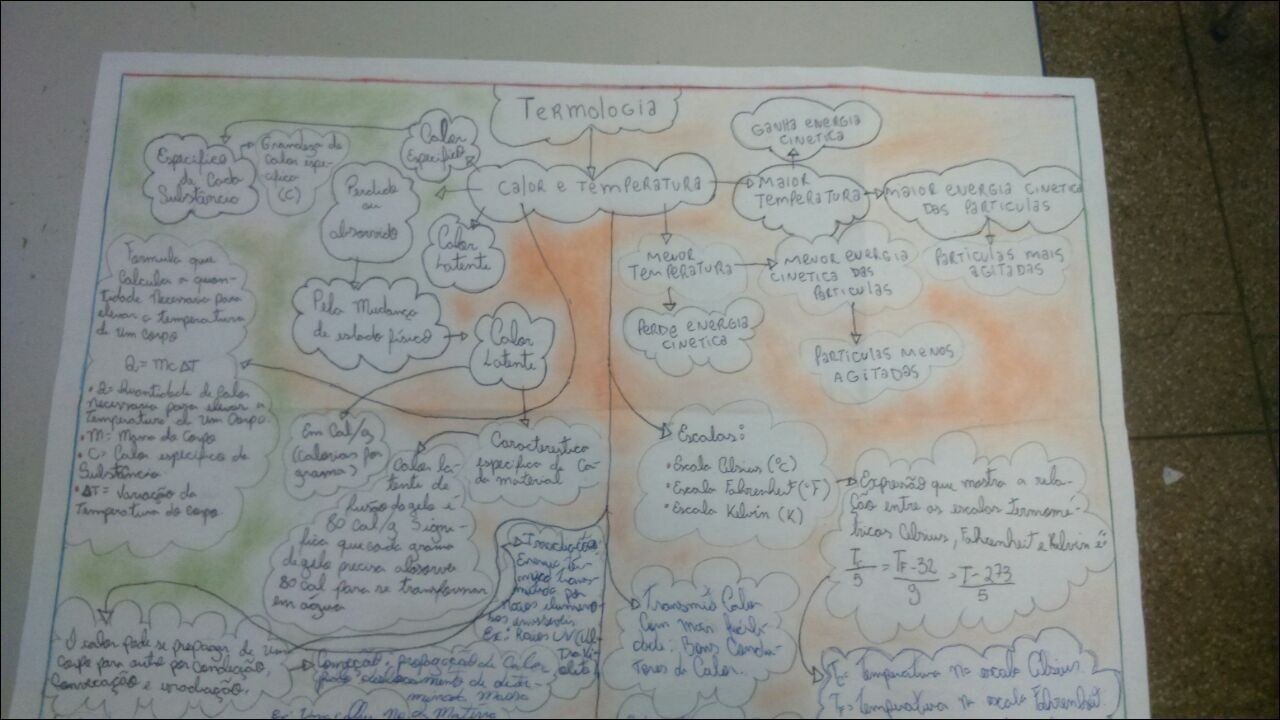 Termologia
Calor e Temperatura
Calor
Específico
Específico
de Cada
Substância
Grandeza do
Calor espe-
cífico
(C)
Perdido
ou
absorvido
Calor
Latente
Pela Mudança
de estado físico
Calor
Latente
Em Cal/g
(Calorias por
grama)
Característica
específica de Ca-
da material
Calor la-
tente de
fusão do gelo é
80 Cal/g
que cada grama
de gelo precisa absorver
80 cal para se transformar
em água
Formula que
Calcula a quan-
tidade necessaria para
elevar a temperatura
de um Corpo
Q = mcΔT
• Q = Quantidade de Calor
necessaria para elevar a
Temperatura de um Corpo.
• M = Massa do Corpo
• C = Calor específico da
Substância.
• ΔT = Variação da
Temperatura do corpo
Maior
Temperatura
Ganha energia
cinetica
Maior energia cinetica
das particulas
Particulas mais
agitadas
Menor
Temperatura
Perde energia
cinetica
Menor energia
cinetica das
particulas
Particulas menos
agitadas
Escalas:
• Escala Celsius (°C)
• Escala Fahrenheit (°F)
• Escala Kelvin (K)
Expressão que mostra a rela-
ção entre as escalas termomé-
tricas Celsius, Fahrenheit e Kelvin é:
Tc/5 = TF-32/9 = T-273/5
Tc = Temperatura na escala Celsius.
TF = Temperatura na escala Fahrenheit.
Transmite Calor
Com mais facili-
dade: Bons Condu-
tores de Calor.
Irradiação:
Energia tér-
mica trans-
mitida por
Ex: Raios UV (Ul-
O calor pode se propagar de um
Corpo para outro por Condução,
Convecção e irradiação.
Convecção: propagação de Calor
pelo deslocamento de
Matéria